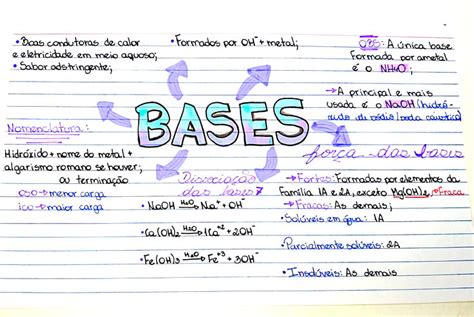 • Boas condutoras de calor
e eletricidade em meio aquoso;
• Sabor adstringente;
• Formados por OH⁻ + metal;
OBS: A única base
Formada por ametal
é o NH₄OH;
→ A principal e mais
usada é o NaOH (hidró-
xido de sódio/soda cáustica)
BASES
Nomenclatura:
Hidróxido + nome do metal +
algarismo romano se houver;
ou terminação
oso → menor carga
ico → maior carga
Dissociação
das bases
• NaOH H₂O→ Na⁺ + OH⁻
• Ca(OH)₂ H₂O→ Ca⁺² + 2OH⁻
• Fe(OH)₃ H₂O→ Fe⁺³ + 3OH⁻
força das bases
→ Fortes: Formadas por elementos da
Família 1A e 2A, exceto Mg(OH)₂ → Fraca
→ Fracas: As demais;
• Solúveis em água: 1A
• Parcialmente solúveis: 2A
• Insolúveis: As demais